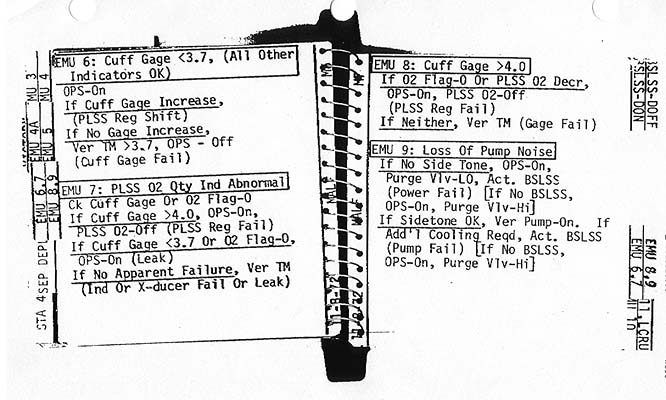 EMU 6: Cuff Gage <3.7, (All Other
Indicators OK)
OPS-On
If Cuff Gage Increase,
(PLSS Reg Shift)
If No Gage Increase,
Ver TM >3.7, OPS - Off
(Cuff Gage Fail)
EMU 7: PLSS O2 Qty Ind Abnormal
Ck Cuff Gage Or O2 Flag-O
If Cuff Gage >4.0, OPS-On,
PLSS O2-Off (PLSS Reg Fail)
If Cuff Gage <3.7 Or O2 Flag-O,
OPS-On (Leak)
If No Apparent Failure, Ver TM
(Ind Or X-ducer Fail Or Leak)
MU 3
MU 4
EMU 4A
EMU 5
EMU 6,7
EMU 8,9
STA 4
SEP DEPL
MALE
EMU 8: Cuff Gage >4.0
If O2 Flag-O Or PLSS O2 Decr,
OPS-On, PLSS O2-Off
(PLSS Reg Fail)
If Neither, Ver TM (Gage Fail)
EMU 9: Loss Of Pump Noise
If No Side Tone, OPS-On,
Purge Vlv-LO, Act. BSLSS
(Power Fail) [If No BSLSS,
OPS-On, Purge Vlv-Hi]
If Sidetone OK, Ver Pump-On. If
Add'l Cooling Reqd, Act. BSLSS
(Pump Fail) [If No BSLSS,
OPS-On, Purge Vlv-Hi]
SLSS-DOFF
SLSS-DON
EMU 8,9
EMU 6,7
11,LCRU